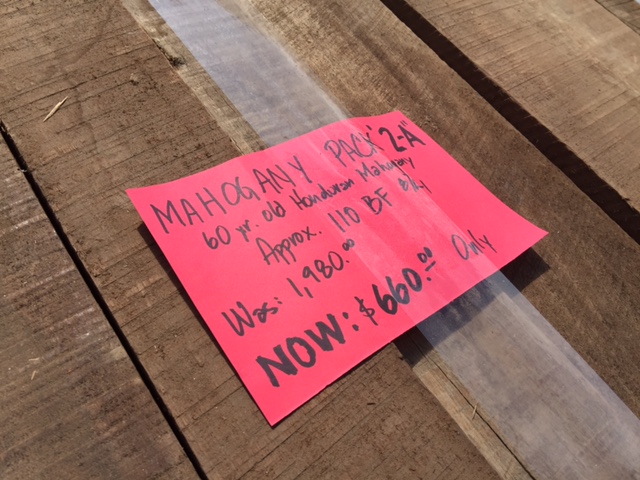 MAHOGANY PACK "2-A"
60 yr. old Honduran Mahogany
Approx. 110 BF 8/4
Was: 1,980.00
NOW: $660.00 Only